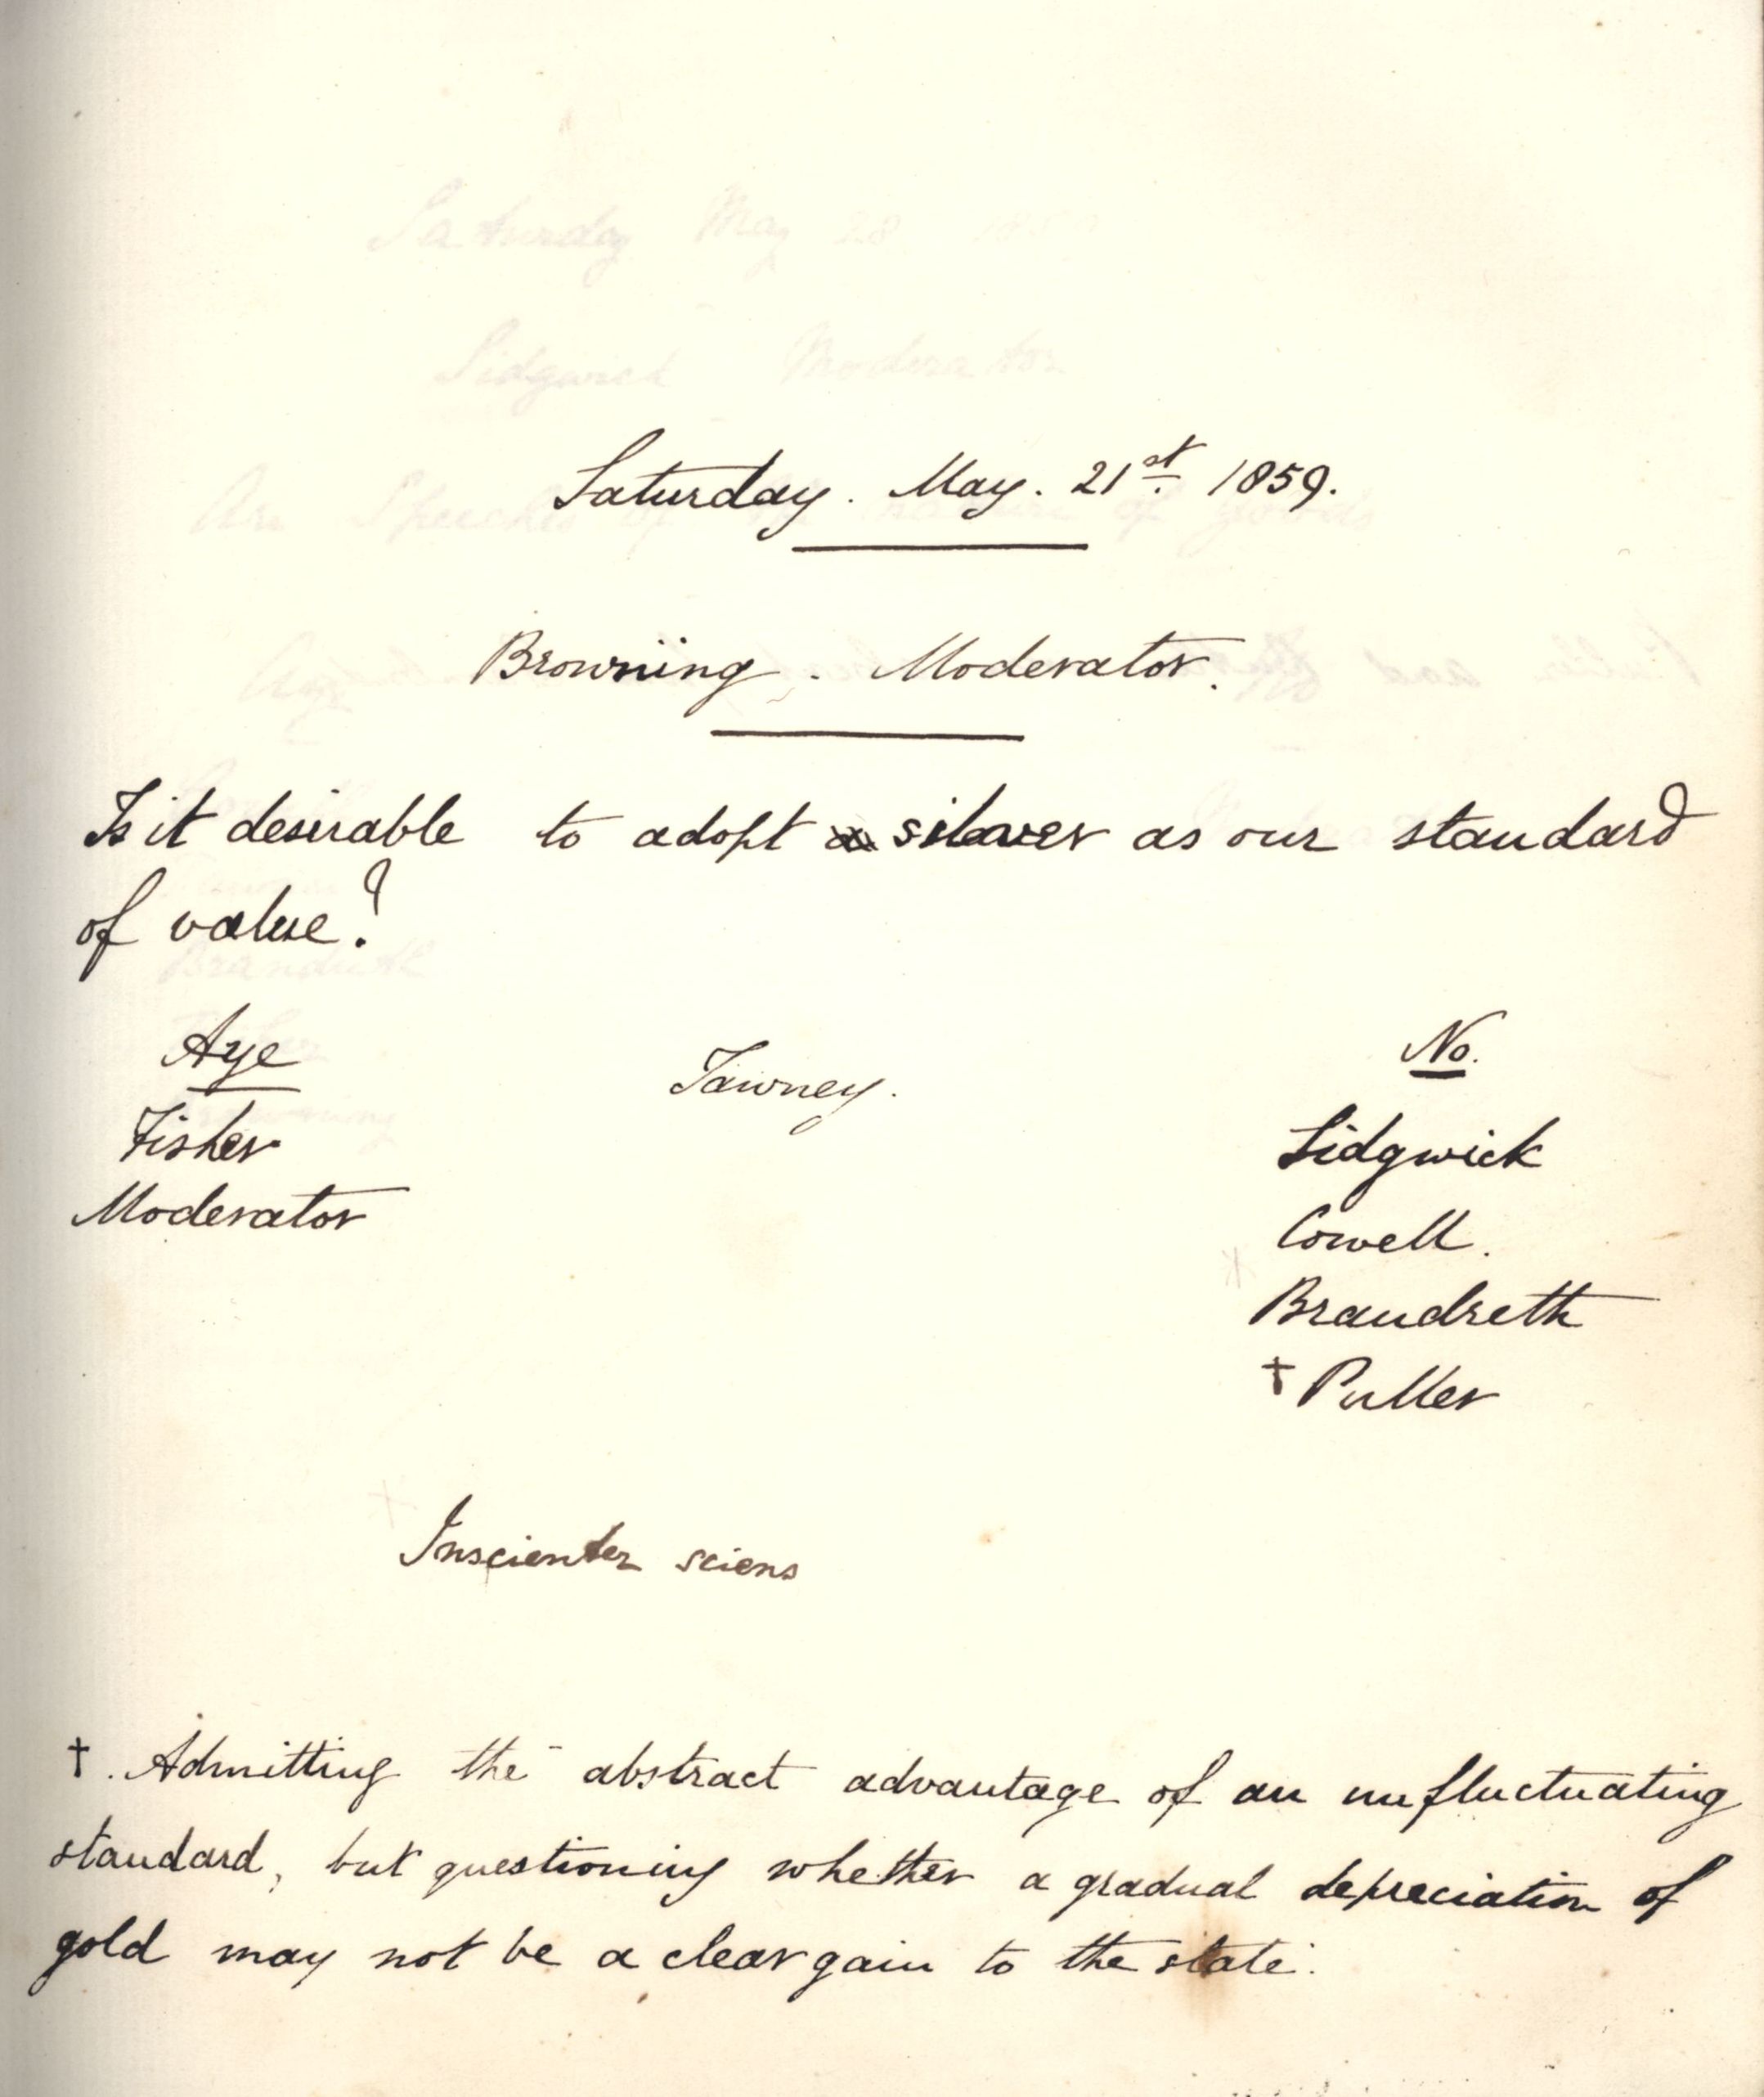 Saturday. May. 21st. 1859.
Browning. Moderator.
Is it desirable to adopt silver as our standard
of value?
Aye
Tawney.
No.
Fisher
Moderator
Sidgwick
Cowell.
Brandreth
† Puller
Inscienter sciens
†. Admitting the abstract advantage of an unfluctuating
standard, but questioning whether a gradual depreciation of
gold may not be a clear gain to the state.